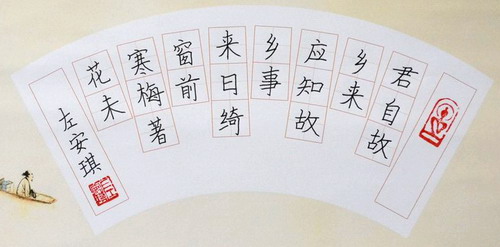 君自故
乡来
应知故
乡事
来日绮
窗前
寒梅著
花未
左安琪